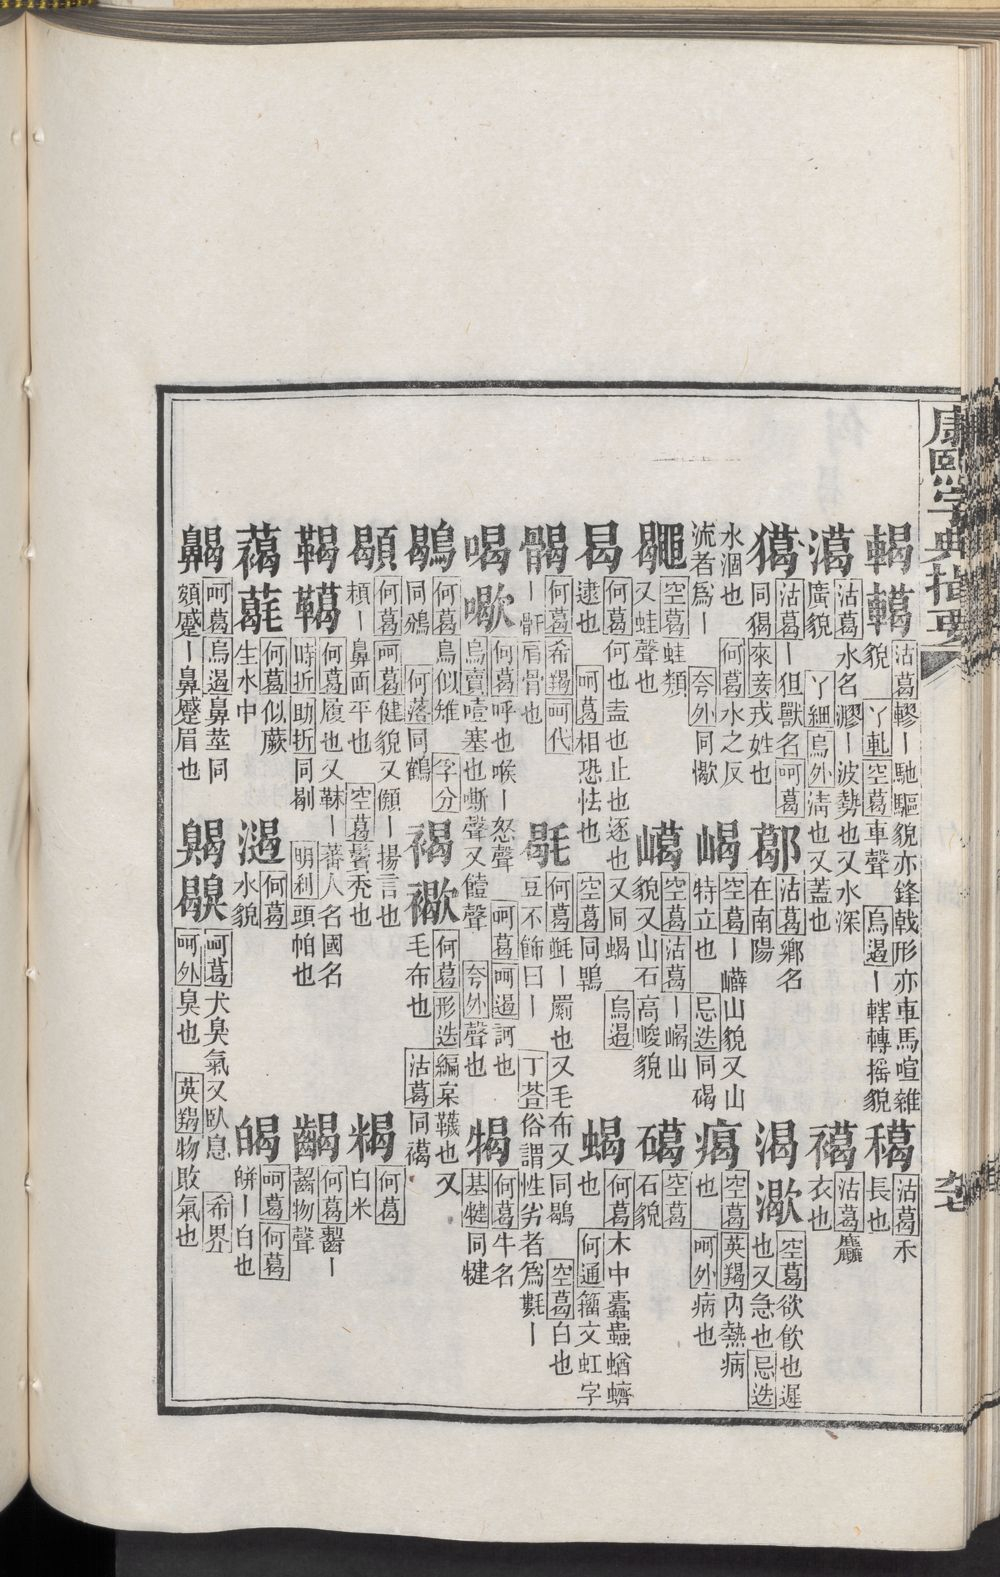 康熙字典指要
輵轕 沽葛轇丨馳驅貌亦鋒戟形亦車馬喧雜貌 丫軋空葛車聲 烏遏丨轄轉摇貌 𥠁 沽葛禾長也
㵧 沽葛水名㶀丨波勢也又水深廣貌 丫細烏外淸也又蓋也 䙐 沽葛䴡衣也
獦 沽葛丨但獸名呵葛同猲來妾戎姓也 鄗 沽葛鄉名在南陽 渴㵣 空葛欲飮也遲也又急也忌迭
水涸也 何葛水之反流者爲丨 夸外同㵣 嵑 空葛丨巁山貌又山特立也 忌迭同碣 㾢 空葛英羯内熱病也 呵外病也
䵷 空葛蛙類又蛙聲也 嶱 空葛沽葛丨嵑山貌又山石高峻貌 礚 空葛石貌
曷 何葛何也盍也止也逐也又同蝎 烏遏逮也 呵葛相恐怯也 空葛同鶡 蝎 何葛木中蠹蟲蝤蠐也 何通籀文虹字
䯎 何葛希羯呵代丨骬肩骨也 毼 何葛㲪丨罽也又毛布又同鶡 空葛白也豆不飾曰丨 丁荅俗謂性劣者爲㲲丨
喝嚈 何葛呼也喉丨怒聲 呵葛呵遏訶也 烏賣噎塞也嘶聲又饐聲 夸外聲也 犗 何葛牛名 基犍同犍
鶡 何葛鳥似雉 字分同鵀 何落同鶴 褐 何葛形迭編枲韈也又毛布也 沽葛同䙐
䫘 何葛呵葛健貌又㒓丨揚言也頛丨鼻面平也 空葛鬢禿也 䊧 何葛白米
鞨 何葛履也又靺丨蕃人名國名 時折助折同剬 明利頭帕也 齃 何葛齧丨齧物聲
䕣 何葛似蕨生水中 㵧 何葛水貌 㿣 呵葛何葛皏丨白也
齃 呵葛烏遏鼻莖同頞蹙丨鼻蹙眉也 䶎 呵葛犬臭氣又臥息 希界呵外臭也 英羯物敗氣也